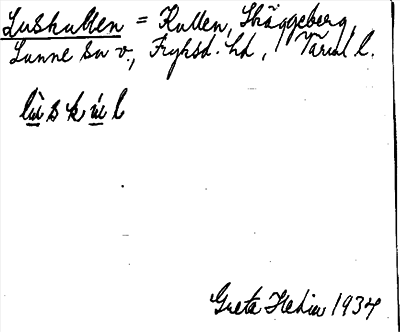 Luskullen = Kullen, Skäggeberg,
Sunne sn v., Fryksd. hd, Värml l.
lùskúl
Greta Hedin 1934